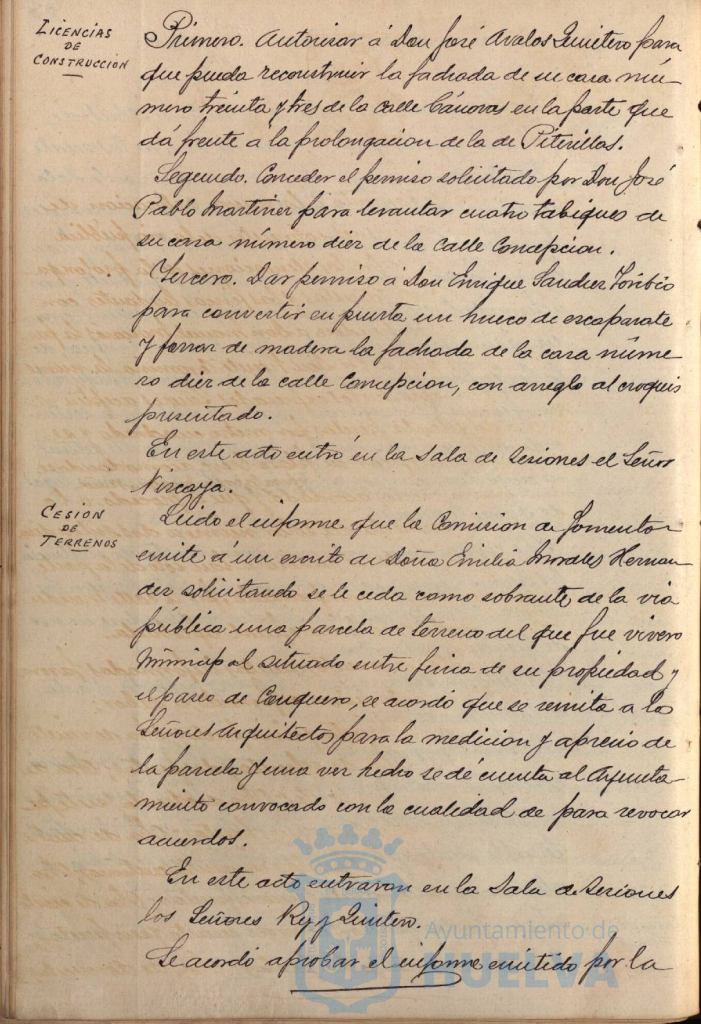 LICENCIAS
DE
CONSTRUCCION
Primero. Autorizar á Don José Avalos Quintero para
que pueda reconstruir la fachada de su casa nú-
mero treinta y tres de la calle Cánovas en la parte que
dá frente á la prolongacion de la de Piterillas.
Segundo. Conceder el permiso solicitado por Don José
Pablo Martinez para levantar cuatro tabiques de
su casa número diez de la calle Concepcion.
Tercero. Dar permiso á Don Enrique Sanchez Toribio
para convertir en puerta un hueco de escaparate
y forrar de madera la fachada de la casa núme-
ro diez de la calle Concepcion, con arreglo al croquis
presentado.
En este acto entró en la Sala de Sesiones el Señor
Vizcaya.
CESION
DE
TERRENOS
Leido el informe que la Comision de Fomento
emite á un escrito de Doña Emilia Morales Hernan-
dez solicitando se le ceda como sobrante de la via
pública una parcela de terreno del que fue vivero
Municipal situado entre finca de su propiedad y
el paseo de Conquero, se acordó que se remita a los
Señores Arquitectos para la medicion y aprecio de
la parcela y una vez hecho se dé cuenta al Ayunta-
miento convocado con la cualidad de para revocar
acuerdos.
En este acto entraron en la Sala de Sesiones
los Señores Rey y Quintero.
Se acordó aprobar el informe emitido por la
Ayuntamiento de
HUELVA